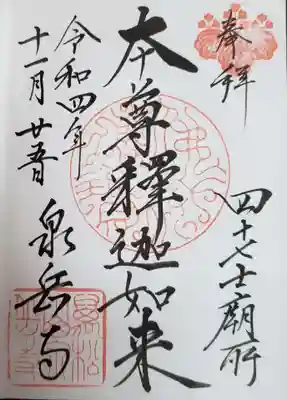 奉拝
四十七士廟所
本尊釋迦如来
令和四年
十一月廿五日
泉岳寺